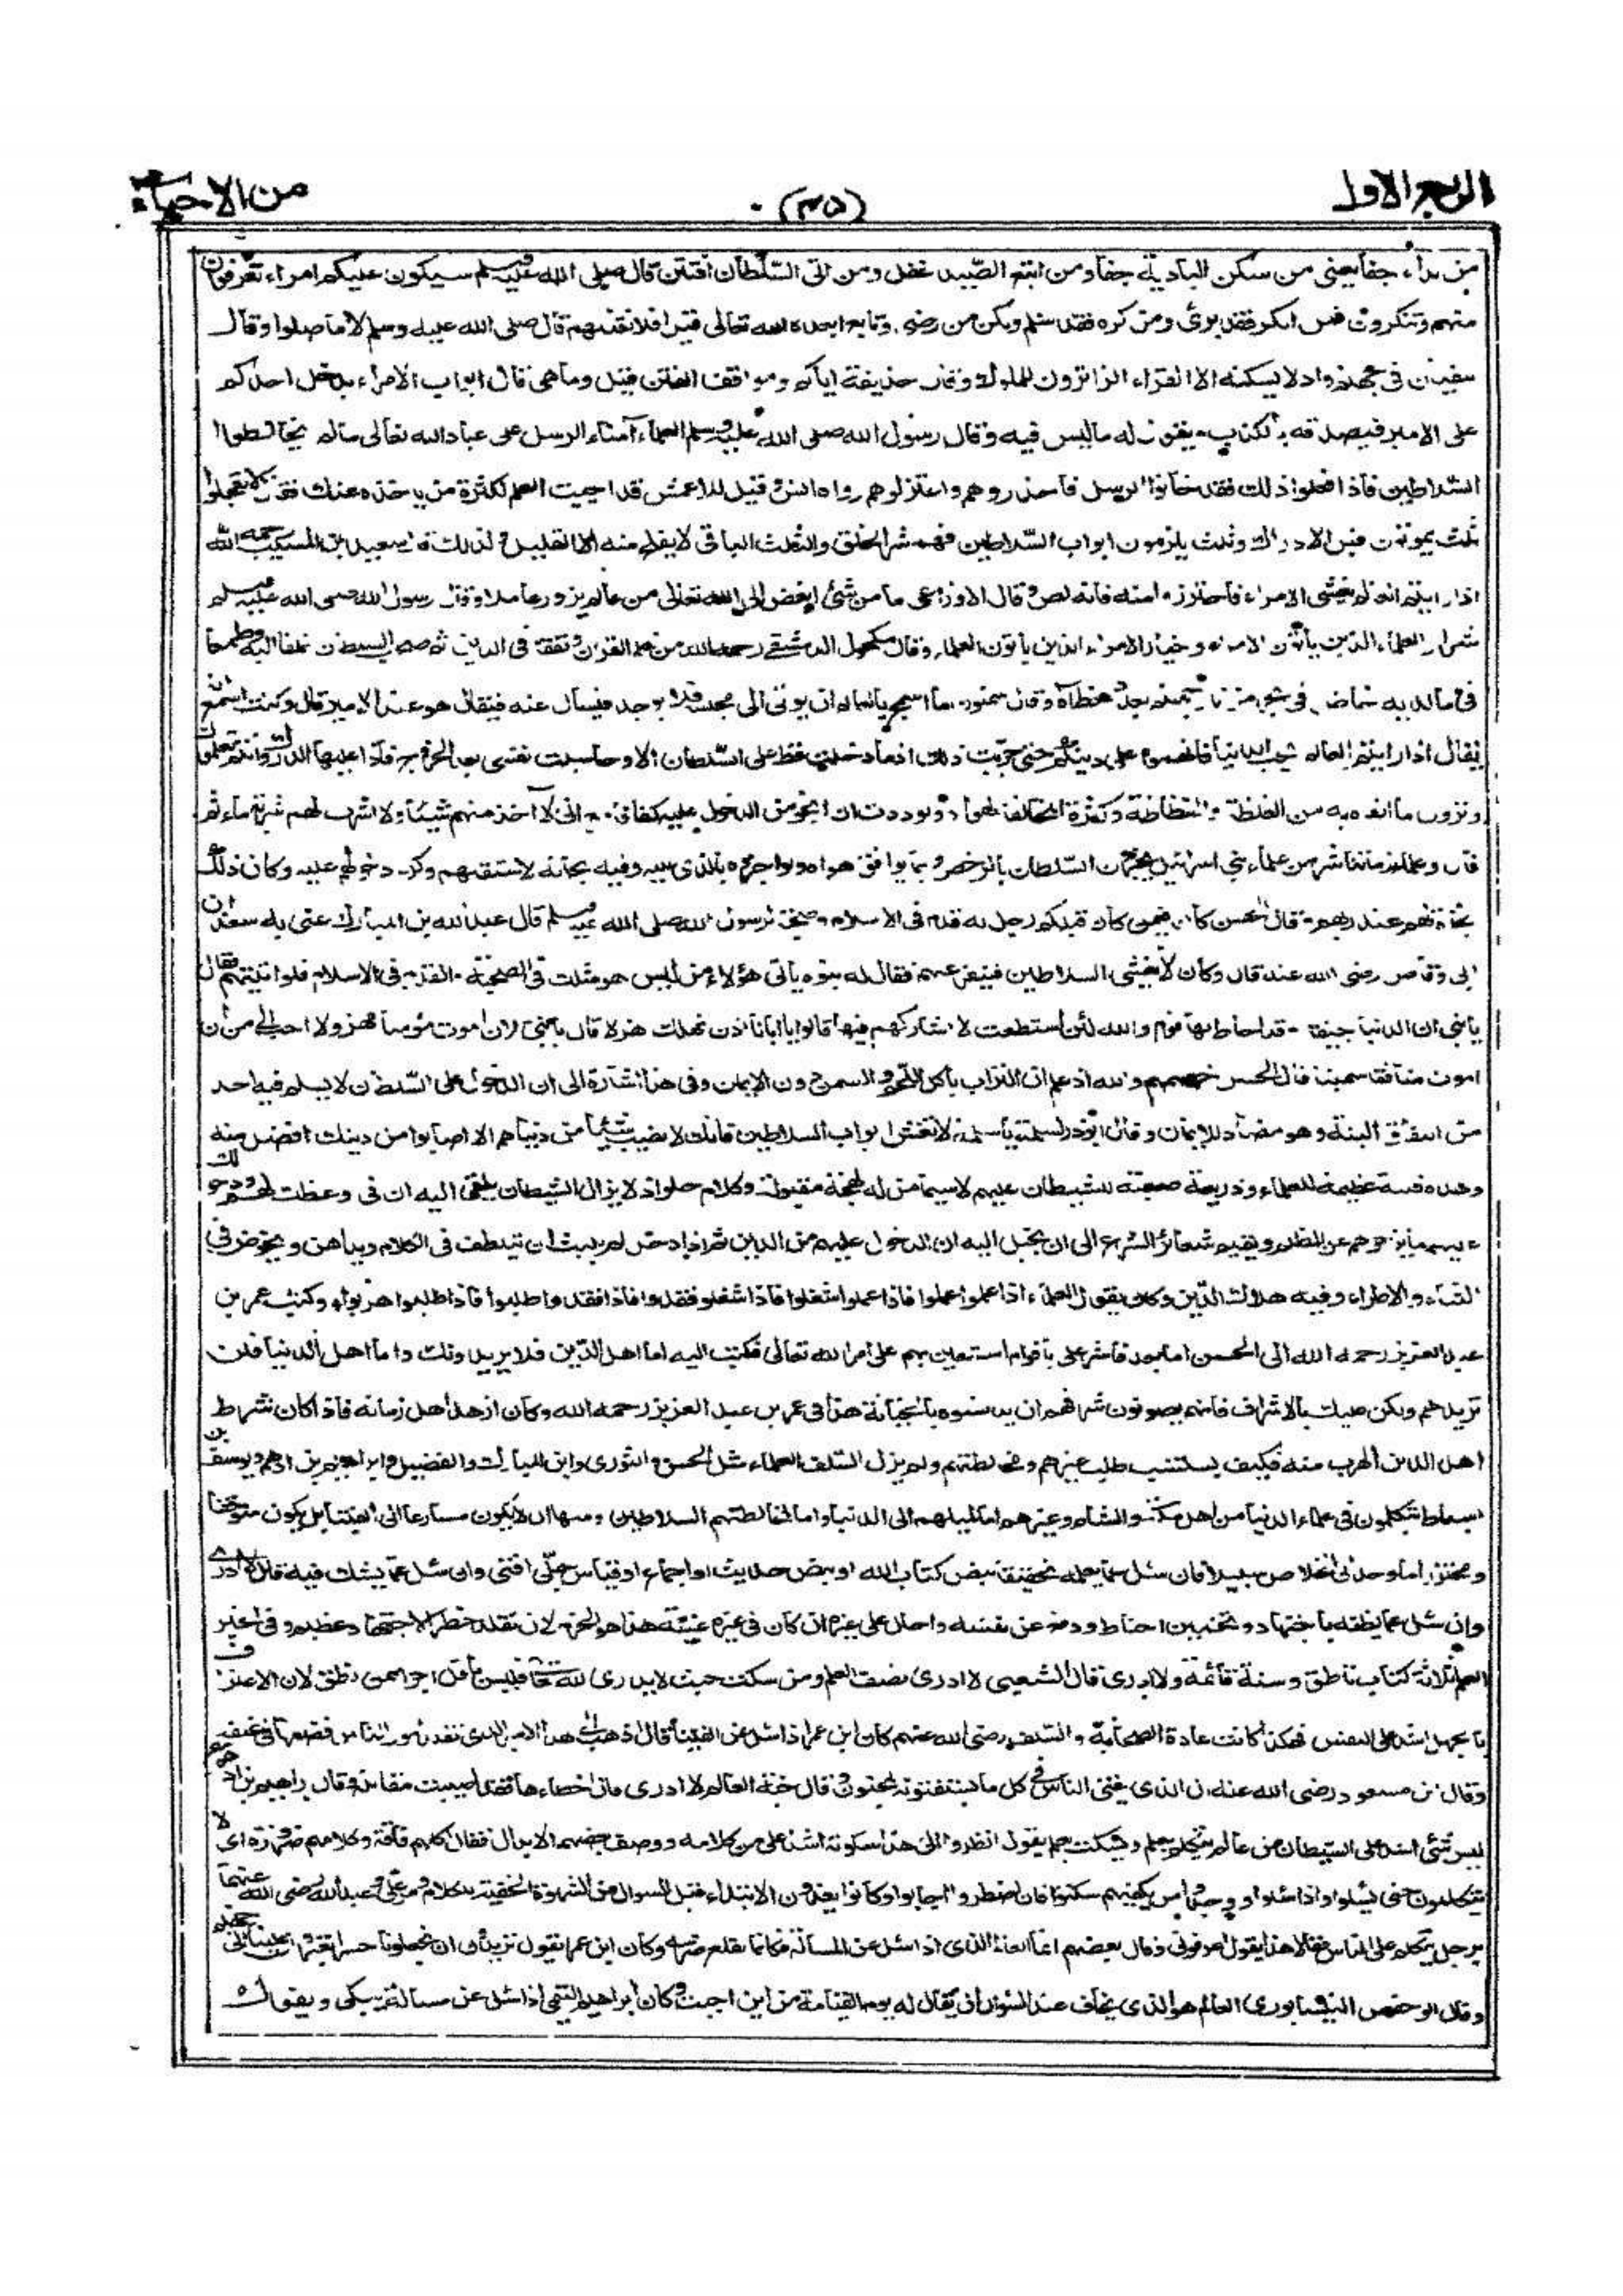 الربع الاول (٣٥) من الاحياء
من بدأ جفا يعنى من سكن البادية جفا ومن اتبع الصيد غفل ومن اتى السلطان افتتن قال صلى الله عليه وسلم سيكون عليكم امراء تعرفون
منهم وتنكرون فمن انكر فقد برئ ومن كره فقد سلم ولكن من رضى وتابع ابعده الله تعالى قيل افلا نقتلهم قال صلى الله عليه وسلم لا ما صلوا وقال
سفيان فى جهنم واد لا يسكنه الا القراء الزائرون للملوك وقال حذيفة اياكم ومواقف الفتن قيل وما هى قال ابواب الامراء يدخل احدكم
على الامير فيصدقه بالكذب ويقول له ما ليس فيه وقال رسول الله صلى الله عليه وسلم العلماء امناء الرسل على عباد الله تعالى ما لم يخالطوا
السلاطين فاذا فعلوا ذلك فقد خانوا الرسل فاحذروهم واعتزلوهم رواه انس وقيل للاعمش قد احييت العلم لكثرة من ياخذه عنك فقال لا تعجلوا
ثلث يموتون قبل الادراك وثلث يلزمون ابواب السلاطين فهم شر الخلق والثلث الباقى لا يفلح منه الا القليل ولذلك قال سعيد بن المسيب رحمه الله
اذا رايتم العالم يغشى الامراء فاحترزوا منه فانه لص وقال الاوزاعى ما من شئ ابغض الى الله تعالى من عالم يزور عاملا وقال رسول الله صلى الله عليه وسلم
شرار العلماء الذين ياتون الامراء وخيار الامراء الذين ياتون العلماء وقال مكحول الدمشقى رحمه الله من تعلم القرآن وتفقه فى الدين ثم صحب السلطان تملقا اليه وطمعا
فى ما لديه خاض فى بحر من نار جهنم بعدد خطاه وقال سمنون ما اسمج بالعالم ان يوتى الى مجلسه فلا يوجد فيسال عنه فيقال هو عند الامير قال وكنت اسمع
يقال اذا رايتم العالم يحب الدنيا فاتهموه على دينكم حتى جربت ذلك اذ ما دخلت قط على السلطان الا وحاسبت نفسى بعد الخروج فارى عليها الدرك وانتم تعلمون
وترون ما القاه به من الغلظة والفظاظة وكثرة المخالفة لهواه ولوددت ان انجو من الدخول عليه كفافا مع انى لا آخذ منهم شيئا ولا اشرب لهم شربة ماء ثم
قال وعلماء زماننا شر من علماء بنى اسرائيل يخبرون السلطان بالرخص وبما يوافق هواه ولو اخبروه بالذى عليه وفيه نجاته لاستثقلهم وكره دخولهم عليه وكان ذلك
نجاة لهم عند ربهم وقال الحسن كان فيمن كان قبلكم رجل له قدم فى الاسلام وصحبة لرسول الله صلى الله عليه وسلم قال عبد الله بن المبارك عنى به سعد بن
ابى وقاص رضى الله عنه قال وكان لا يغشى السلاطين وينفر عنهم فقال له بنوه ياتى هؤلاء من ليس هو مثلك فى الصحبة والقدم فى الاسلام فلو اتيتهم فقال
يا بنى ان الدنيا جيفة وقد احاط بها قوم والله لئن استطعت لا اشاركهم فيها قالوا يا ابانا اذن تهلك هزلا قال يا بنى لان اموت مؤمنا مهزولا احب الى من ان
اموت منافقا سمينا قال الحسن خصمهم والله اذ علم ان التراب ياكل اللحم والسمن دون الايمان وفى هذا اشارة الى ان الداخل على السلطان لا يسلم فيه احد
من النفاق البتة وهو مضاد للايمان وقال ابو ذر لسلمة يا سلمة لا تغش ابواب السلاطين فانك لا تصيب شيئا من دنياهم الا اصابوا من دينك افضل منه
وهذه فتنة عظيمة للعلماء وذريعة صعبة للشيطان عليهم لا سيما من له لهجة مقبولة وكلام حلو اذ لا يزال الشيطان يلقى اليه ان فى وعظك لهم ودخولك
عليهم ما يزجرهم عن الظلم ويقيم شعائر الشرع الى ان يخيل اليه ان الدخول عليهم من الدين ثم اذا دخل لم يلبث ان يتلطف فى الكلام ويداهن ويخوض فى
الثناء والاطراء وفيه هلاك الدين وكان يقول العلماء اذا علموا عملوا فاذا عملوا شغلوا فاذا شغلوا فقدوا فاذا فقدوا طلبوا فاذا طلبوا هربوا وكتب عمر بن
عبد العزيز رحمه الله الى الحسن اما بعد فاشر على باقوام استعين بهم على امر الله تعالى فكتب اليه اما اهل الدين فلا يريدونك واما اهل الدنيا فلن
تريدهم ولكن عليك بالاشراف فانهم يصونون شرفهم ان يدنسوه بالخيانة هذا فى عمر بن عبد العزيز رحمه الله وكان ازهد اهل زمانه فاذا كان شرط
اهل الدين الهرب منه فكيف يستنسب طلب غيرهم ومخالطتهم ولم يزل السلف العلماء مثل الحسن والثورى وابن المبارك والفضيل وابراهيم بن ادهم ويوسف بن
اسباط يتكلمون فى علماء الدنيا من اهل مكة والشام وغيرهم اما لميلهم الى الدنيا واما لمخالطتهم السلاطين ومنها ان لا يكون مسارعا الى الفتيا بل يكون متوقفا
ومحترزا ما وجد الى الخلاص سبيلا فان سئل عما يعلمه تحقيقا بنص كتاب الله او بنص حديث او اجماع او قياس جلى افتى وان سئل عما يشك فيه قال لا ادرى
وان سئل عما يظنه باجتهاد وتخمين احتاط ودفع عن نفسه واحال على غيره ان كان فى غيره غنية هذا هو الحزم لان تقلد خطر الاجتهاد عظيم وفى الخبر
العلم ثلاثة كتاب ناطق وسنة قائمة ولا ادرى قال الشعبى لا ادرى نصف العلم ومن سكت حيث لا يدرى لله تعالى فليس باقل اجرا ممن نطق لان الاعتراف
بالجهل اشد على النفس فهكذا كانت عادة الصحابة والسلف رضى الله عنهم كان ابن عمر اذا سئل عن الفتيا قال اذهب الى هذا الامير الذى تقلد امور الناس فضعها فى عنقه
وقال ابن مسعود رضى الله عنه ان الذى يفتى الناس فى كل ما يستفتونه لمجنون وقال جنة العالم لا ادرى فان اخطاءها فقد اصيبت مقاتله وقال ابراهيم بن ادهم
ليس شئ اشد على الشيطان من عالم يتكلم بعلم ويسكت بعلم يقول انظروا الى هذا سكوته اشد على من كلامه ووصف بعضهم الابدال فقال اكلهم فاقة وكلامهم ضرورة اى لا
يتكلمون حتى يسئلوا واذا سئلوا ووجدوا من يكفيهم سكتوا فان اضطروا اجابوا وكانوا يعدون الابتداء قبل السوال من الشهوة الخفية للكلام ومر على وعبد الله رضى الله عنهما
برجل يتكلم على الناس فقالا هذا يقول اعرفونى وقال بعضهم انما العالم الذى اذا سئل عن المسالة فكانما يقلع ضرسه وكان ابن عمر يقول تريدون ان تجعلونا جسرا تعبرون علينا الى جهنم
وقال ابو حفص النيسابورى العالم هو الذى يخاف عند السؤال ان يقال له يوم القيامة من اين اجبت وكان ابراهيم التيمى اذا سئل عن مسالة يبكى ويقول